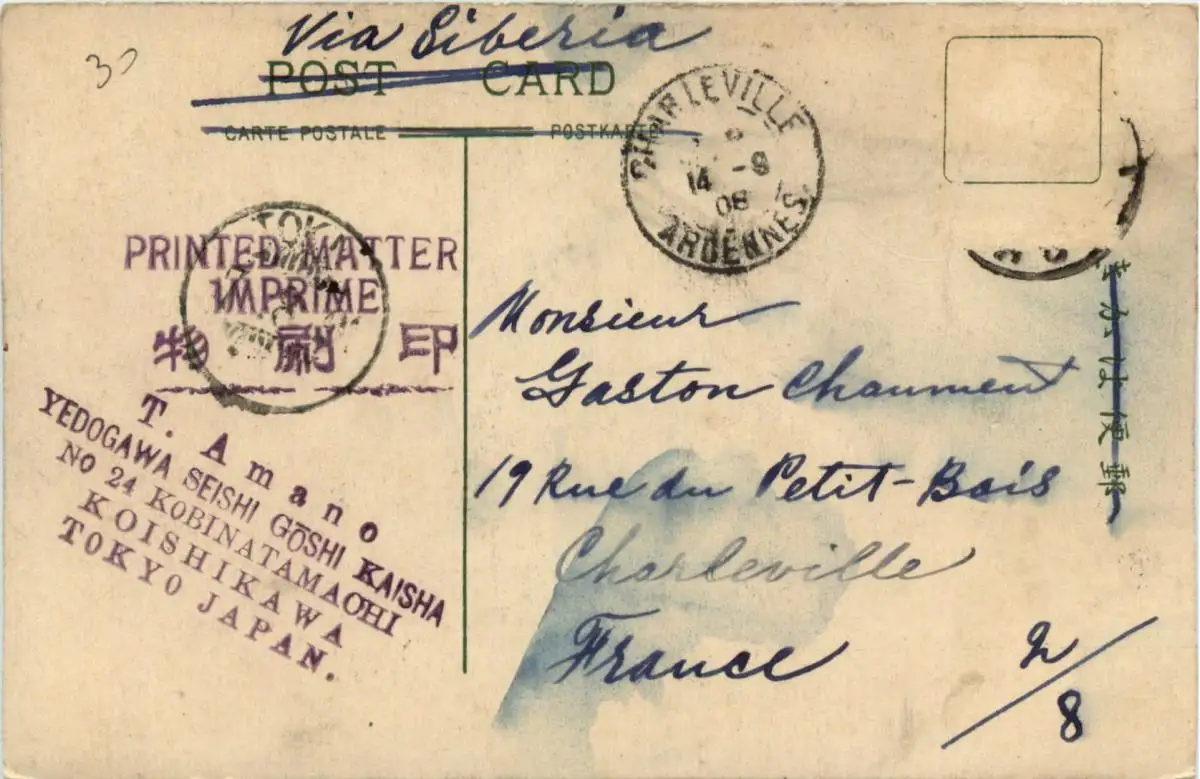 Via Siberia
POST CARD
CARTE POSTALE
POSTKARTE
30
CHARLEVILLE
14 -9
08
ARDENNES
TOKIO
PRINTED MATTER
IMPRIME
物刷印
T. Amano
YEDOGAWA SEISHI GŌSHI KAISHA
No 24 KOBINATAMACHI
KOISHIKAWA
TOKYO JAPAN.
Monsieur
Gaston Chaument
19 Rue du Petit-Bois
Charleville
France
2/8
きかは便郵